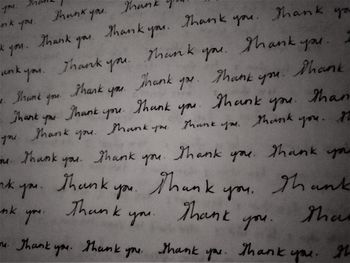 you. Thank
nk you. Thank you. Thank you. Thank
k you. Thank you. Thank you. Thank you. Thank you
ank you. Thank you. Thank you. Thank you.
Thank you. Thank you. Thank you. Thank you. Thank
Thank you. Thank you. Thank you. Thank you. Than
you. Thank you. Thank you. Thank you. Thank you.
you. Thank you. Thank you. Thank you. Thank you
nk you. Thank you. Thank you. Thank
nk you. Thank you. Thank you. Thank
you. Thank you. Thank you. Thank you. Thank you. Th